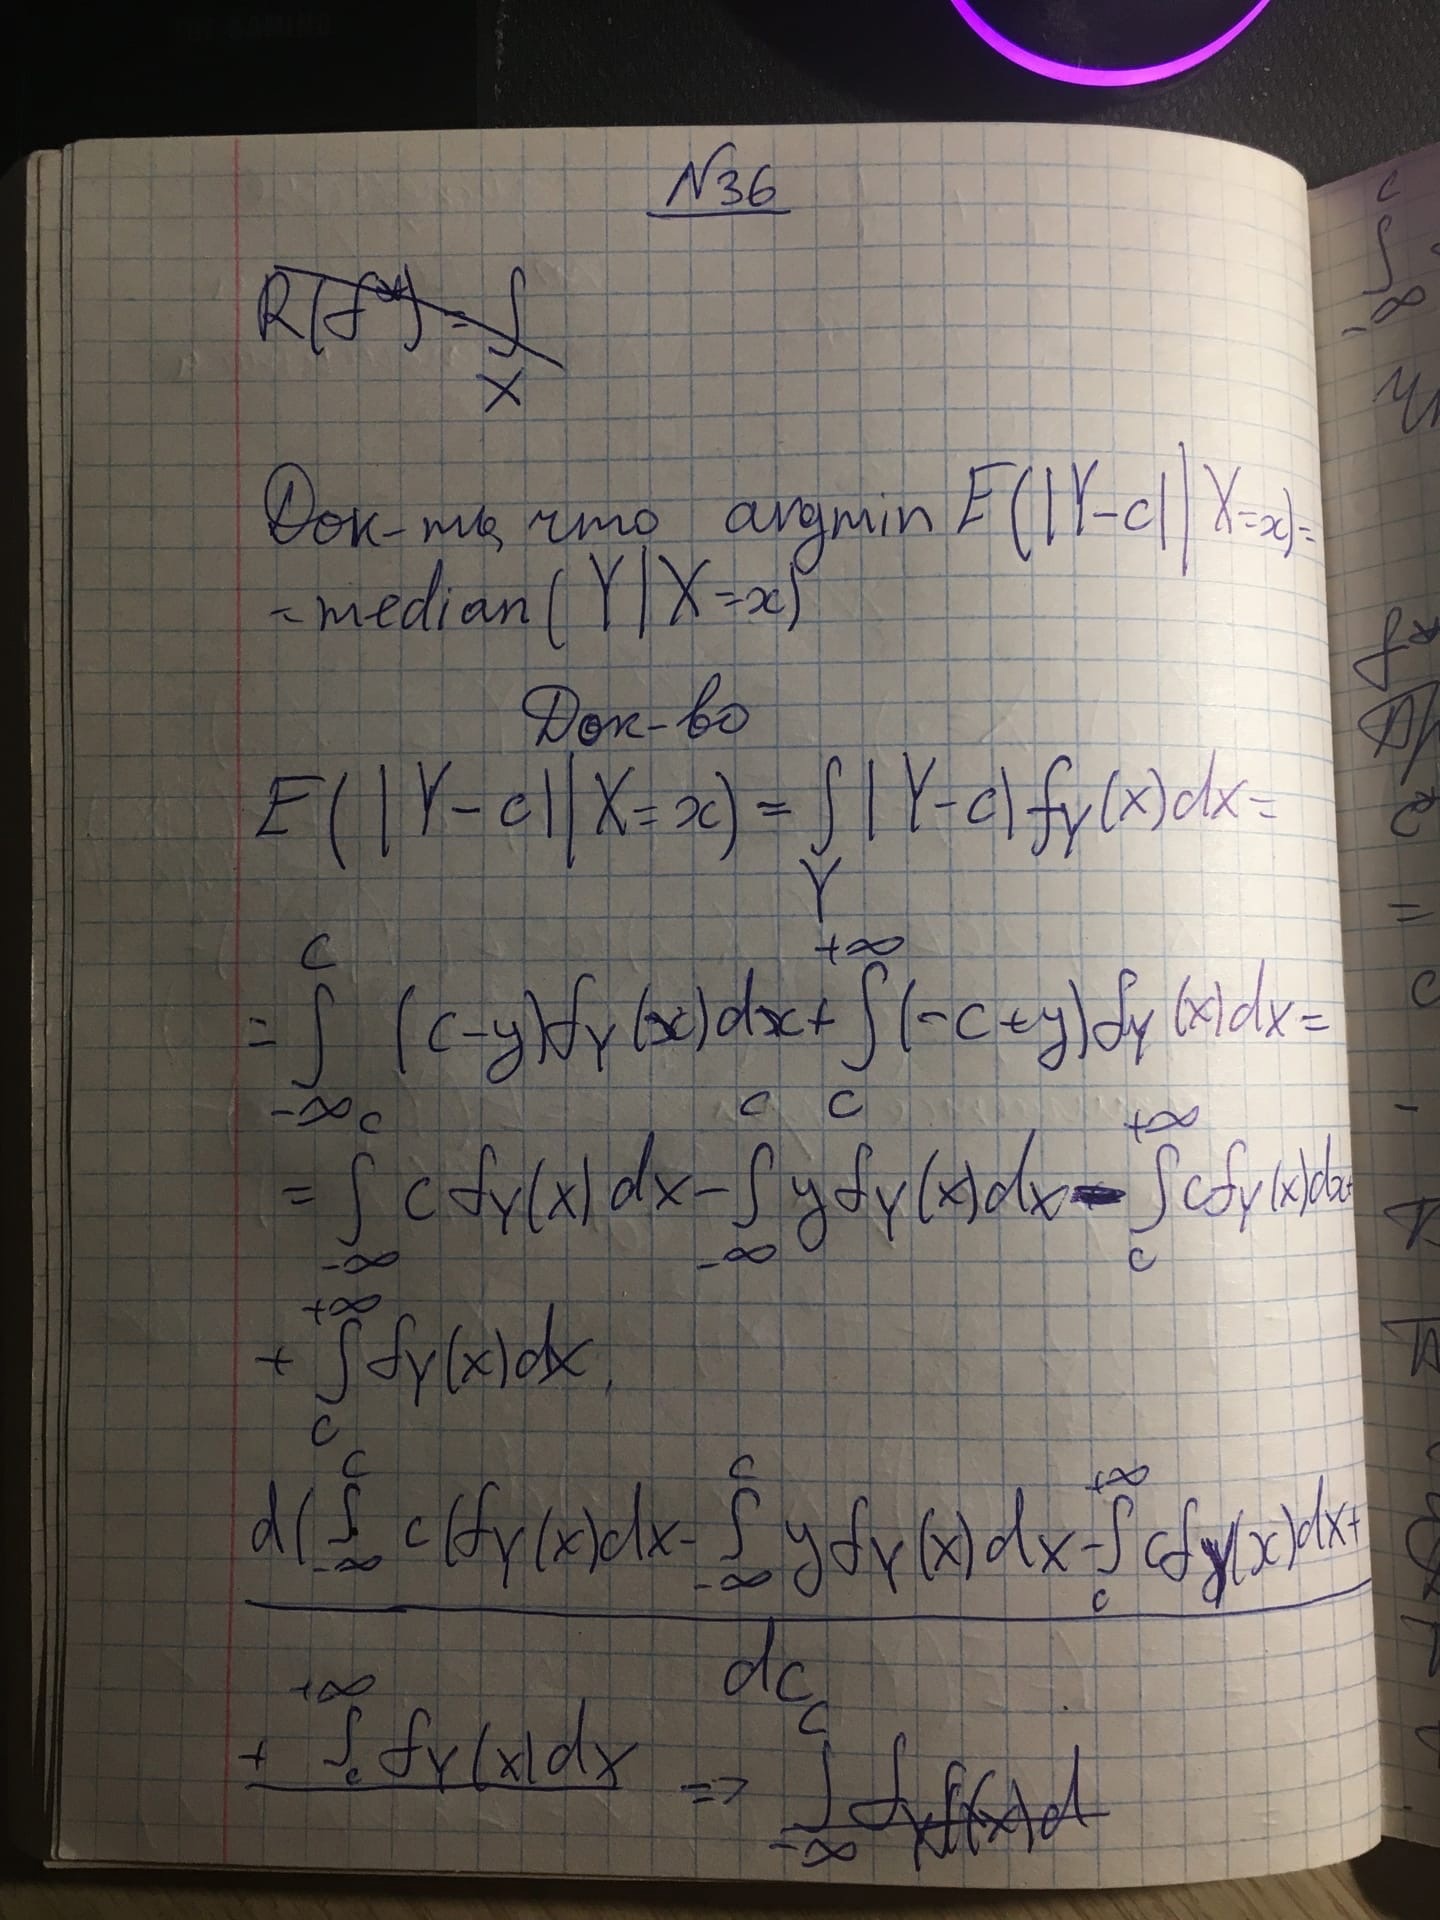 N36
R(f*) = ∫
X
Док-ть, что argmin E(|Y-c| | X=x) =
= median(Y|X=x)
Док-во
E(|Y-c| | X=x) = ∫_Y |Y-c| f_Y(x)dx =
= ∫_{-∞}^{c} (c-y)f_Y(x)dx + ∫_{c}^{+∞} (-c+y)f_Y(x)dx =
= ∫_{-∞}^{c} c f_Y(x)dx - ∫_{-∞}^{c} y f_Y(x)dx - ∫_{c}^{+∞} c f_Y(x)dx +
+ ∫_{c}^{+∞} f_Y(x)dx.
d(∫_{-∞}^{c} c(f_Y(x)dx - ∫_{-∞}^{c} y f_Y(x)dx - ∫_{c}^{+∞} c f_y(x)dx +
dc
+ ∫_{c}^{+∞} f_Y(x)dx => ∫_{-∞}^{c}